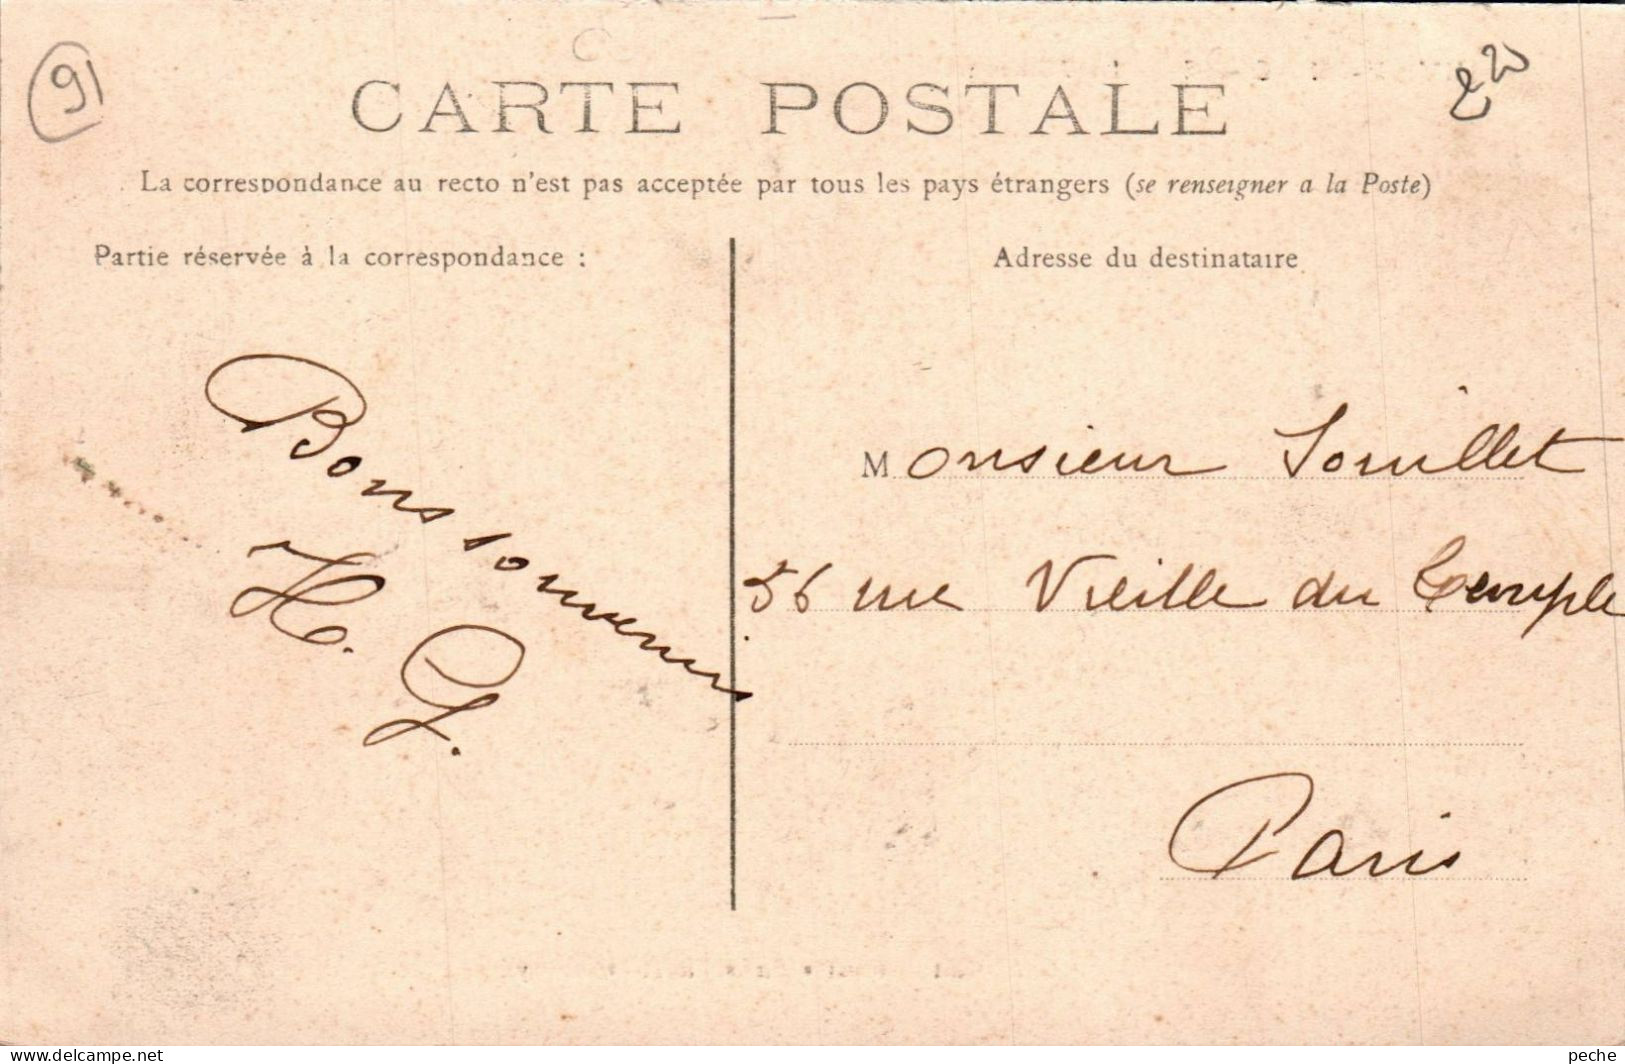 91
CARTE POSTALE
La correspondance au recto n'est pas acceptée par tous les pays étrangers (se renseigner a la Poste)
Partie réservée à la correspondance :
Adresse du destinataire
Bons souvenirs
H. G.
Monsieur Souillet
56 rue Vieille du Temple
Paris
www.delcampe.net
peche